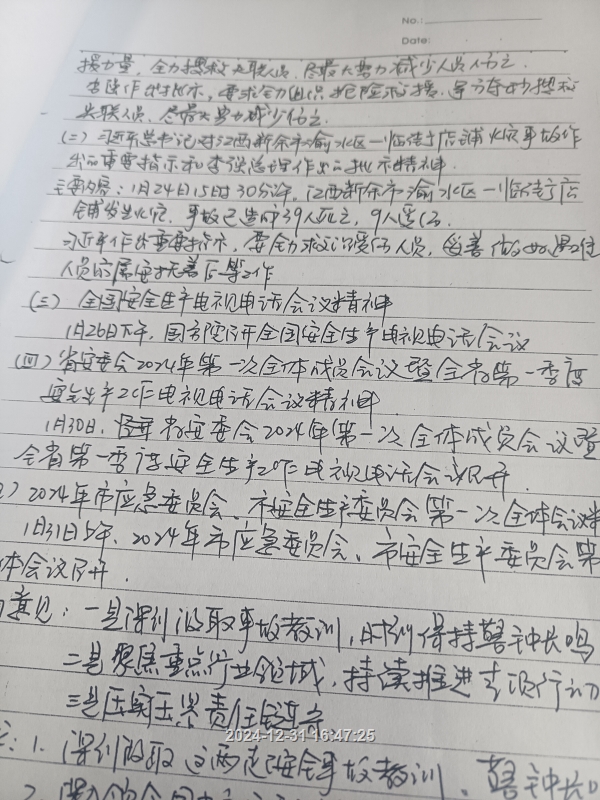 No.:
Date:
援力量,全力搜救失联人员,尽最大努力减少人员伤亡
李强作出批示,要求全力组织抢险救援,千方百计搜救
失联人员,尽最大努力减少伤亡.
(二)习近平总书记对江西新余市渝水区一临街店铺火灾事故作
出的重要指示和李强总理作出的批示精神.
主要内容:1月24日15时30分许,江西新余市渝水区一临街店
铺发生火灾,事故已造成39人死亡,9人受伤.
习近平作出重要指示,要全力救治受伤人员,妥善做好遇难
人员家属安抚善后等工作
(三)全国安全生产电视电话会议精神
1月26日下午,国务院召开全国安全生产电视电话会议
(四)省安委会2024年第一次全体成员会议暨全省第一季度
安全生产工作电视电话会议精神.
1月30日,省安委会2024年第一次全体成员会议暨
全省第一季度安全生产工作电视电话会议召开.
)2024年市应急委员会、市安全生产委员会第一次全体会议
1月31日上午,2024年市应急委员会、市安全生产委员会第
体会议召开.
意见:一是深刻汲取事故教训,时刻保持警钟长鸣
二是聚焦重点行业领域,持续推进专项行动
三是压实压紧责任链条
2024-12-31 16:47:25
:1.深刻汲取这两起安全事故教训,警钟长
2.